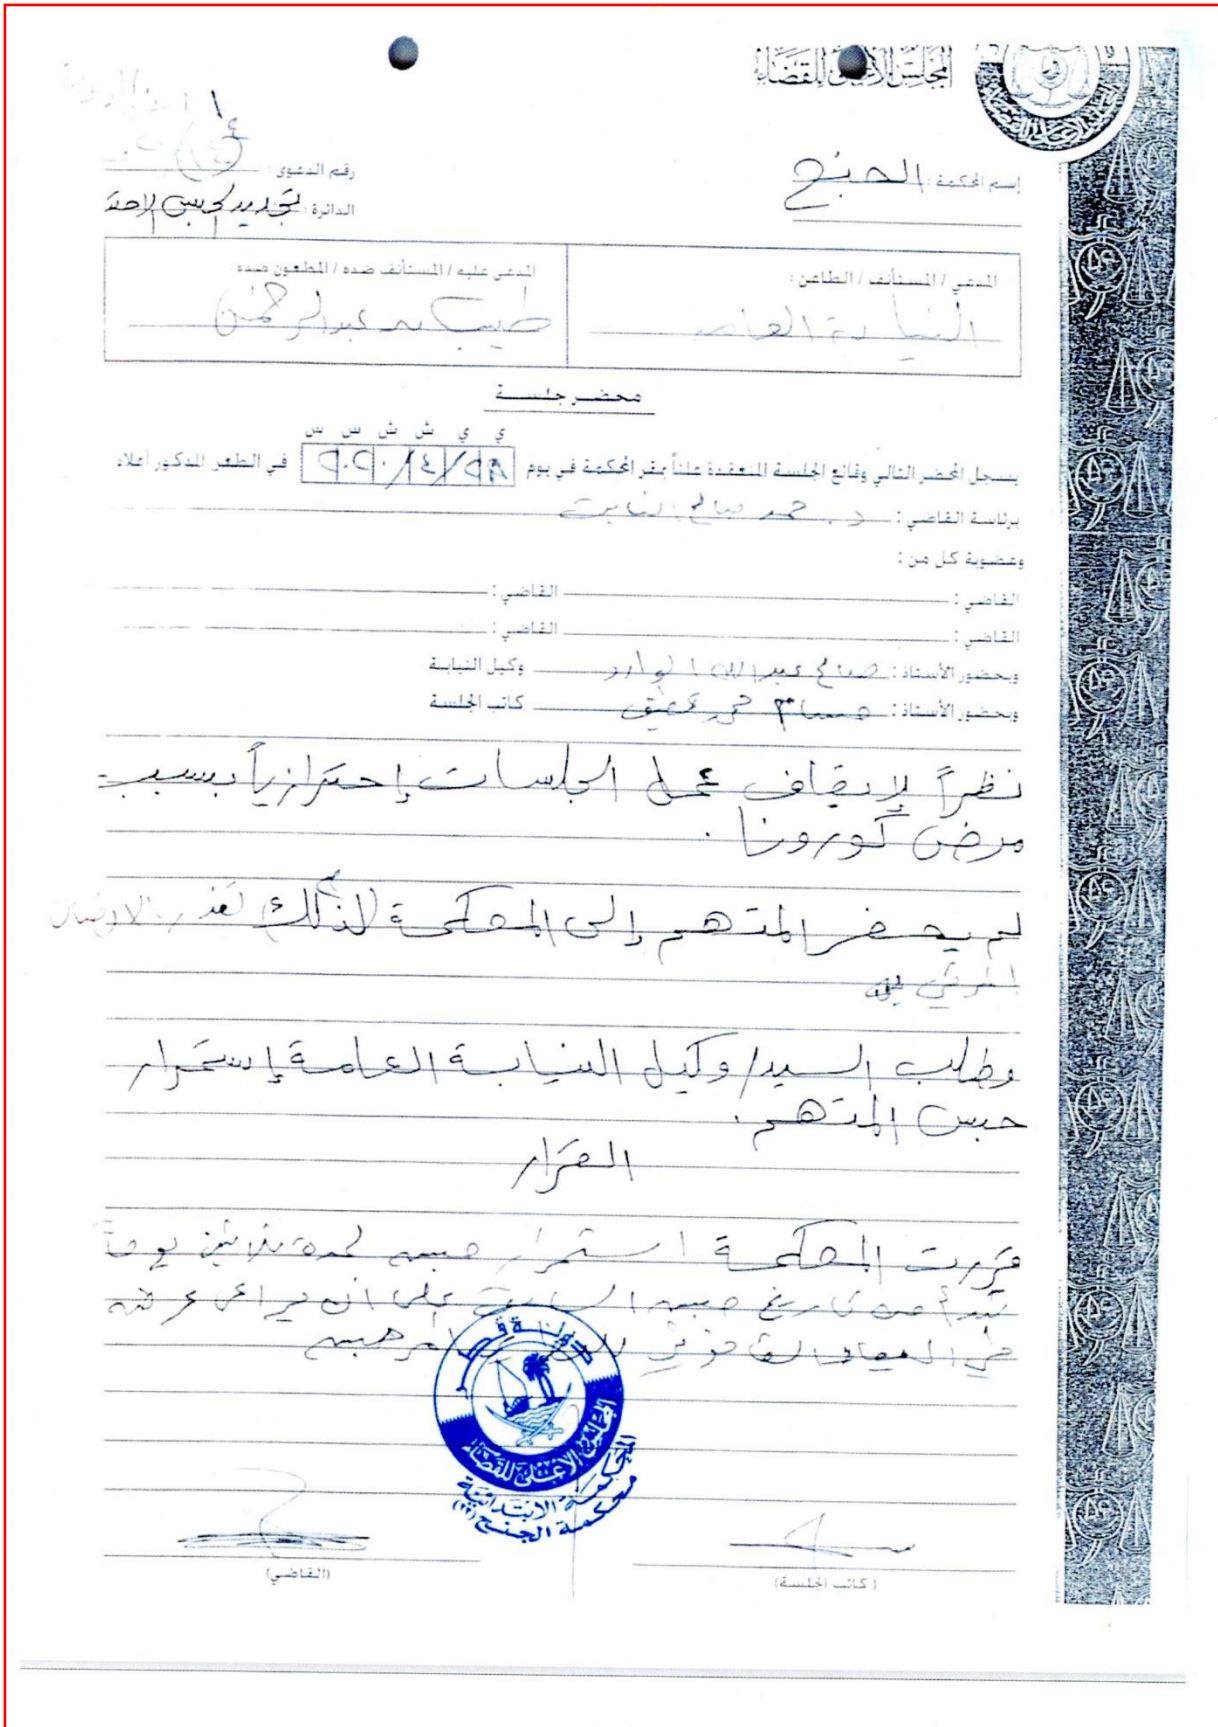 المجلس الأعلى للقضاء
إسم المحكمة : الجنح
رقم الدعوى :
الدائرة : تجديد حبس
المدعي / المستأنف / الطاعن :
النيابة العامة
المدعى عليه / المستأنف ضده / المطعون ضده :
طيب بن عبدالرحمن
محضر جلسة
ي ي ش ش س س
يسجل المحضر التالي وقائع الجلسة المنعقدة علناً بمقر المحكمة في يوم في الطعن المذكور أعلاه
برئاسة القاضي : د. حمد صالح النابت
وعضوية كل من :
القاضي : القاضي :
القاضي : القاضي :
وبحضور الأستاذ : صالح عبدالله وكيل النيابة
وبحضور الأستاذ : حسام كاتب الجلسة
نظراً لإيقاف عمل الجلسات إحترازياً بسبب
مرض كورونا .
لم يحضر المتهم إلى المحكمة لذلك
المرئي
وطلب السيد/ وكيل النيابة العامة إستمرار
حبس المتهم .
القرار
قررت المحكمة استمرار حبسه لمدة ثلاثين يوماً
تبدأ من تاريخ حبسه السابق على أن يراعى عرضه
في الميعاد القانوني حبسه
دولة قطر
المجلس الأعلى للقضاء
المحكمة الابتدائية
محكمة الجنح
(القاضي)
(كاتب الجلسة)